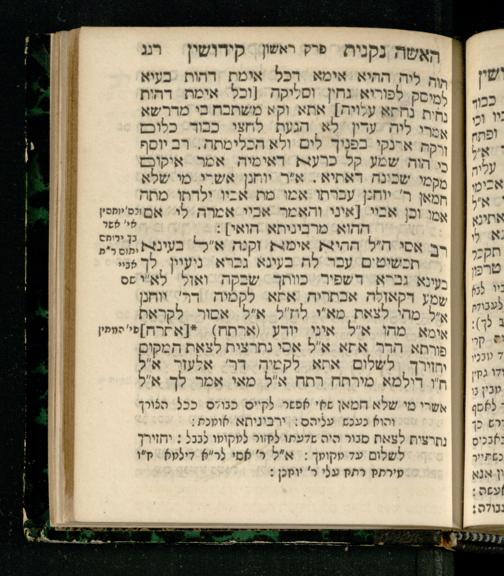 האשה נקנית פרק ראשון קידושין רנג
הוה ליה ההיא אימא דכל אימת דהות בעיא
למיסק לפוריא גחין וסליקה [וכל אימת דהות
נחית נחתא עלויה] אתא וקא משתבח בי מדרשא
אמרי ליה עדין לא הגעת לחצי כבוד כלום
זרקה ארנקי בפניך לים ולא הכלימתה. רב יוסף
כי הוה שמע קל כרעא דאימיה אמר איקום
מקמי שכינה דאתיא. א״ר יוחנן אשרי מי שלא
חמאן ר׳ יוחנן עברתו אמו מת אביו ילדתו מתה
אמו וכן אביי [איני והאמר אביי אמרה לי אם
ההוא מרביניתא הואי]:
רב אסי ה״ל ההיא אימא זקנה א״ל בעינא
תכשיטים עבד לה בעינא גברא ניעיין לך
בעינא גברא דשפיר כוותך שבקה ואזל לא״י
שמע דקאזלה אבתריה אתא לקמיה דר׳ יוחנן
א״ל מהו לצאת מא״י לח״ל א״ל אסור לקראת
אימא מהו א״ל איני יודע (ארתח) *[אתרח]
פורתא הדר אתא א״ל אסי נתרצית לצאת המקום
יחזירך לשלום אתא לקמיה דר׳ אלעזר א״ל
ח״ו דילמא מירתח רתח א״ל מאי אמר לך א״ל
אשרי מי שלא חמאן שאי אפשר לקיים כבודם ככל הצורך
והוא נענש עליהם: רביניתא אומנת:
נתרצית לצאת סבור היה שדעתו לחזור למקומו לבבל: יחזירך
לשלום עד מקומך: א״ל ר׳ אסי לר״א דילמא ח״ו
מירתח רתח עלי ר׳ יוחנן: